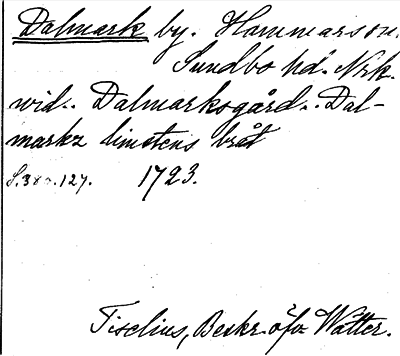 Dalmark by. Hammarsn.
Sundbo hd. Nrk.
wid.. Dalmarksgård.. Dal-
markz limstens bråt
S. 127. 1723.
Tiselius, Beskr. öfv. Wätter.